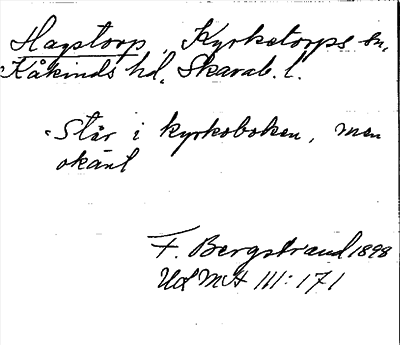 Hagstorp, Kyrketorps sn,
Kåkinds hd, Skarab. l.
Står i kyrkoboken, men
okänt
F. Bergstrand 1898
Ud M A III: 171